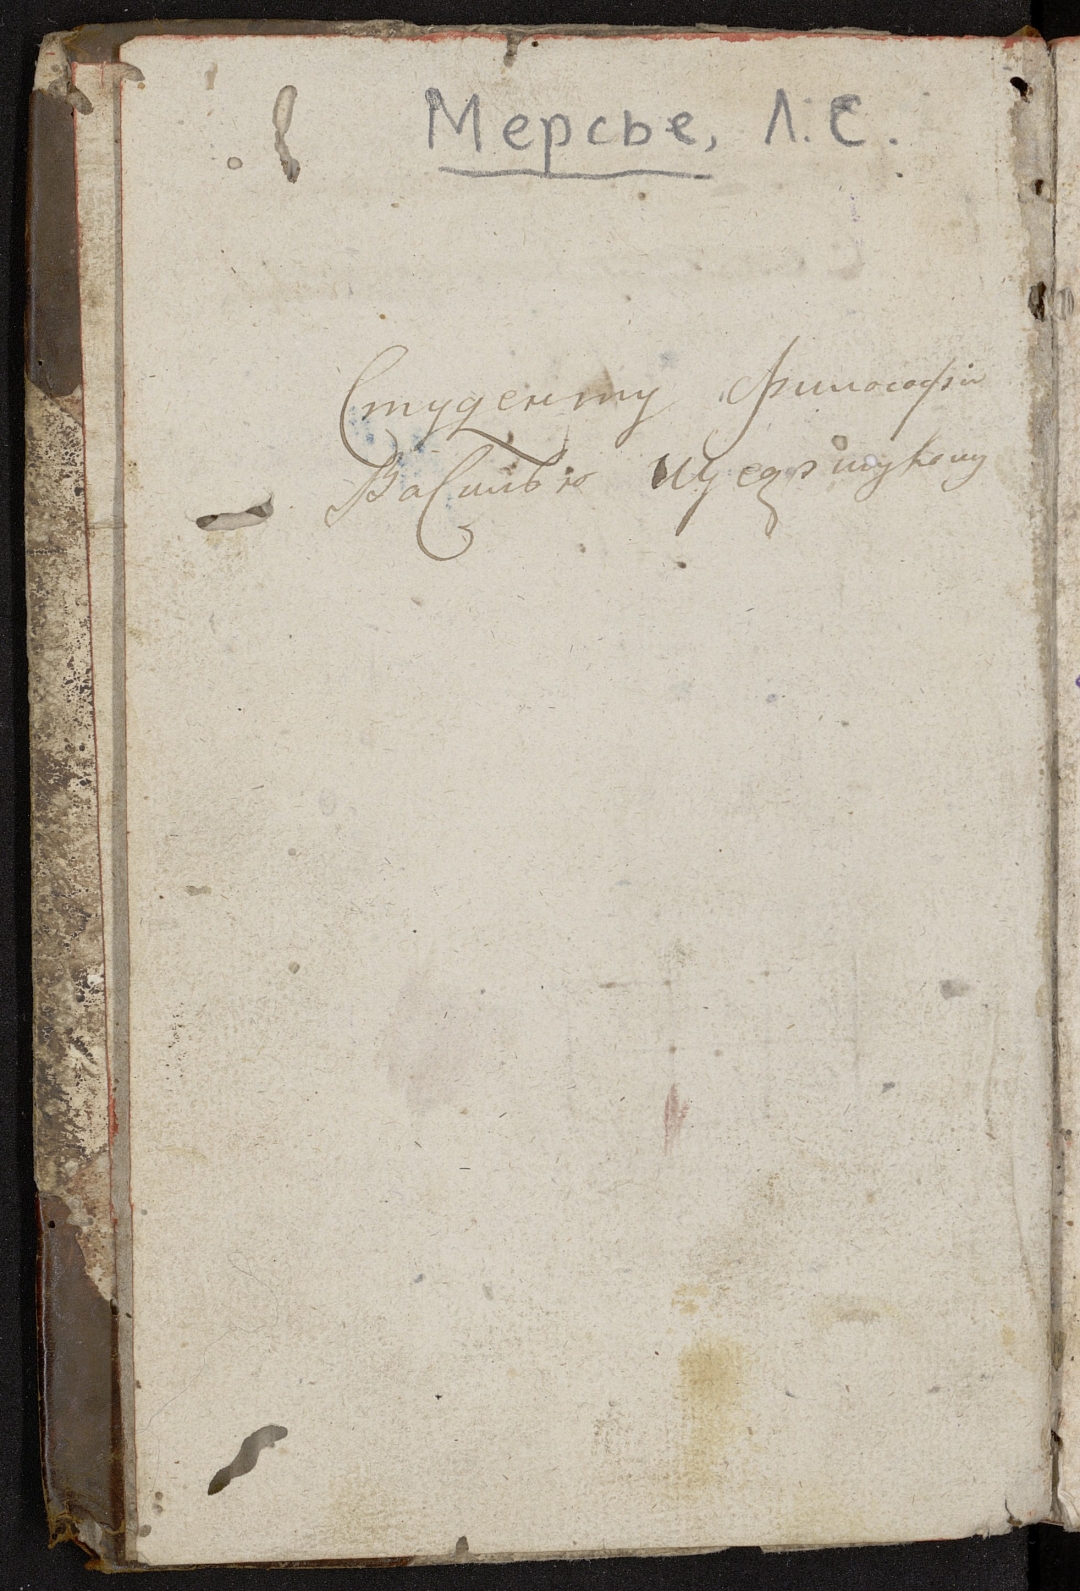 Мерсье, Л. С.
Студенту Философіи
Василью